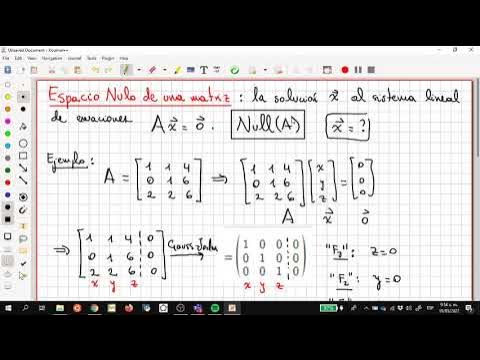 Unsaved Document - Xournal++
File Edit View Navigation Journal Tools Plugin Help
Espacio Nulo de una matriz : la solución x⃗ al sistema lineal
de ecuaciones A x⃗ = 0⃗ : Null(A) x⃗ = ?
Ejemplo: A = [1 1 4; 0 1 6; 2 2 6] ⇒ [1 1 4; 0 1 6; 2 2 6] [x; y; z] = [0; 0; 0]
A x⃗ 0⃗
⇒ [1 1 4 0; 0 1 6 0; 2 2 6 0] Gauss-Jordan → = (1 0 0 0; 0 1 0 0; 0 0 1 0) "F3": z=0
x y z x y z "F2": y=0